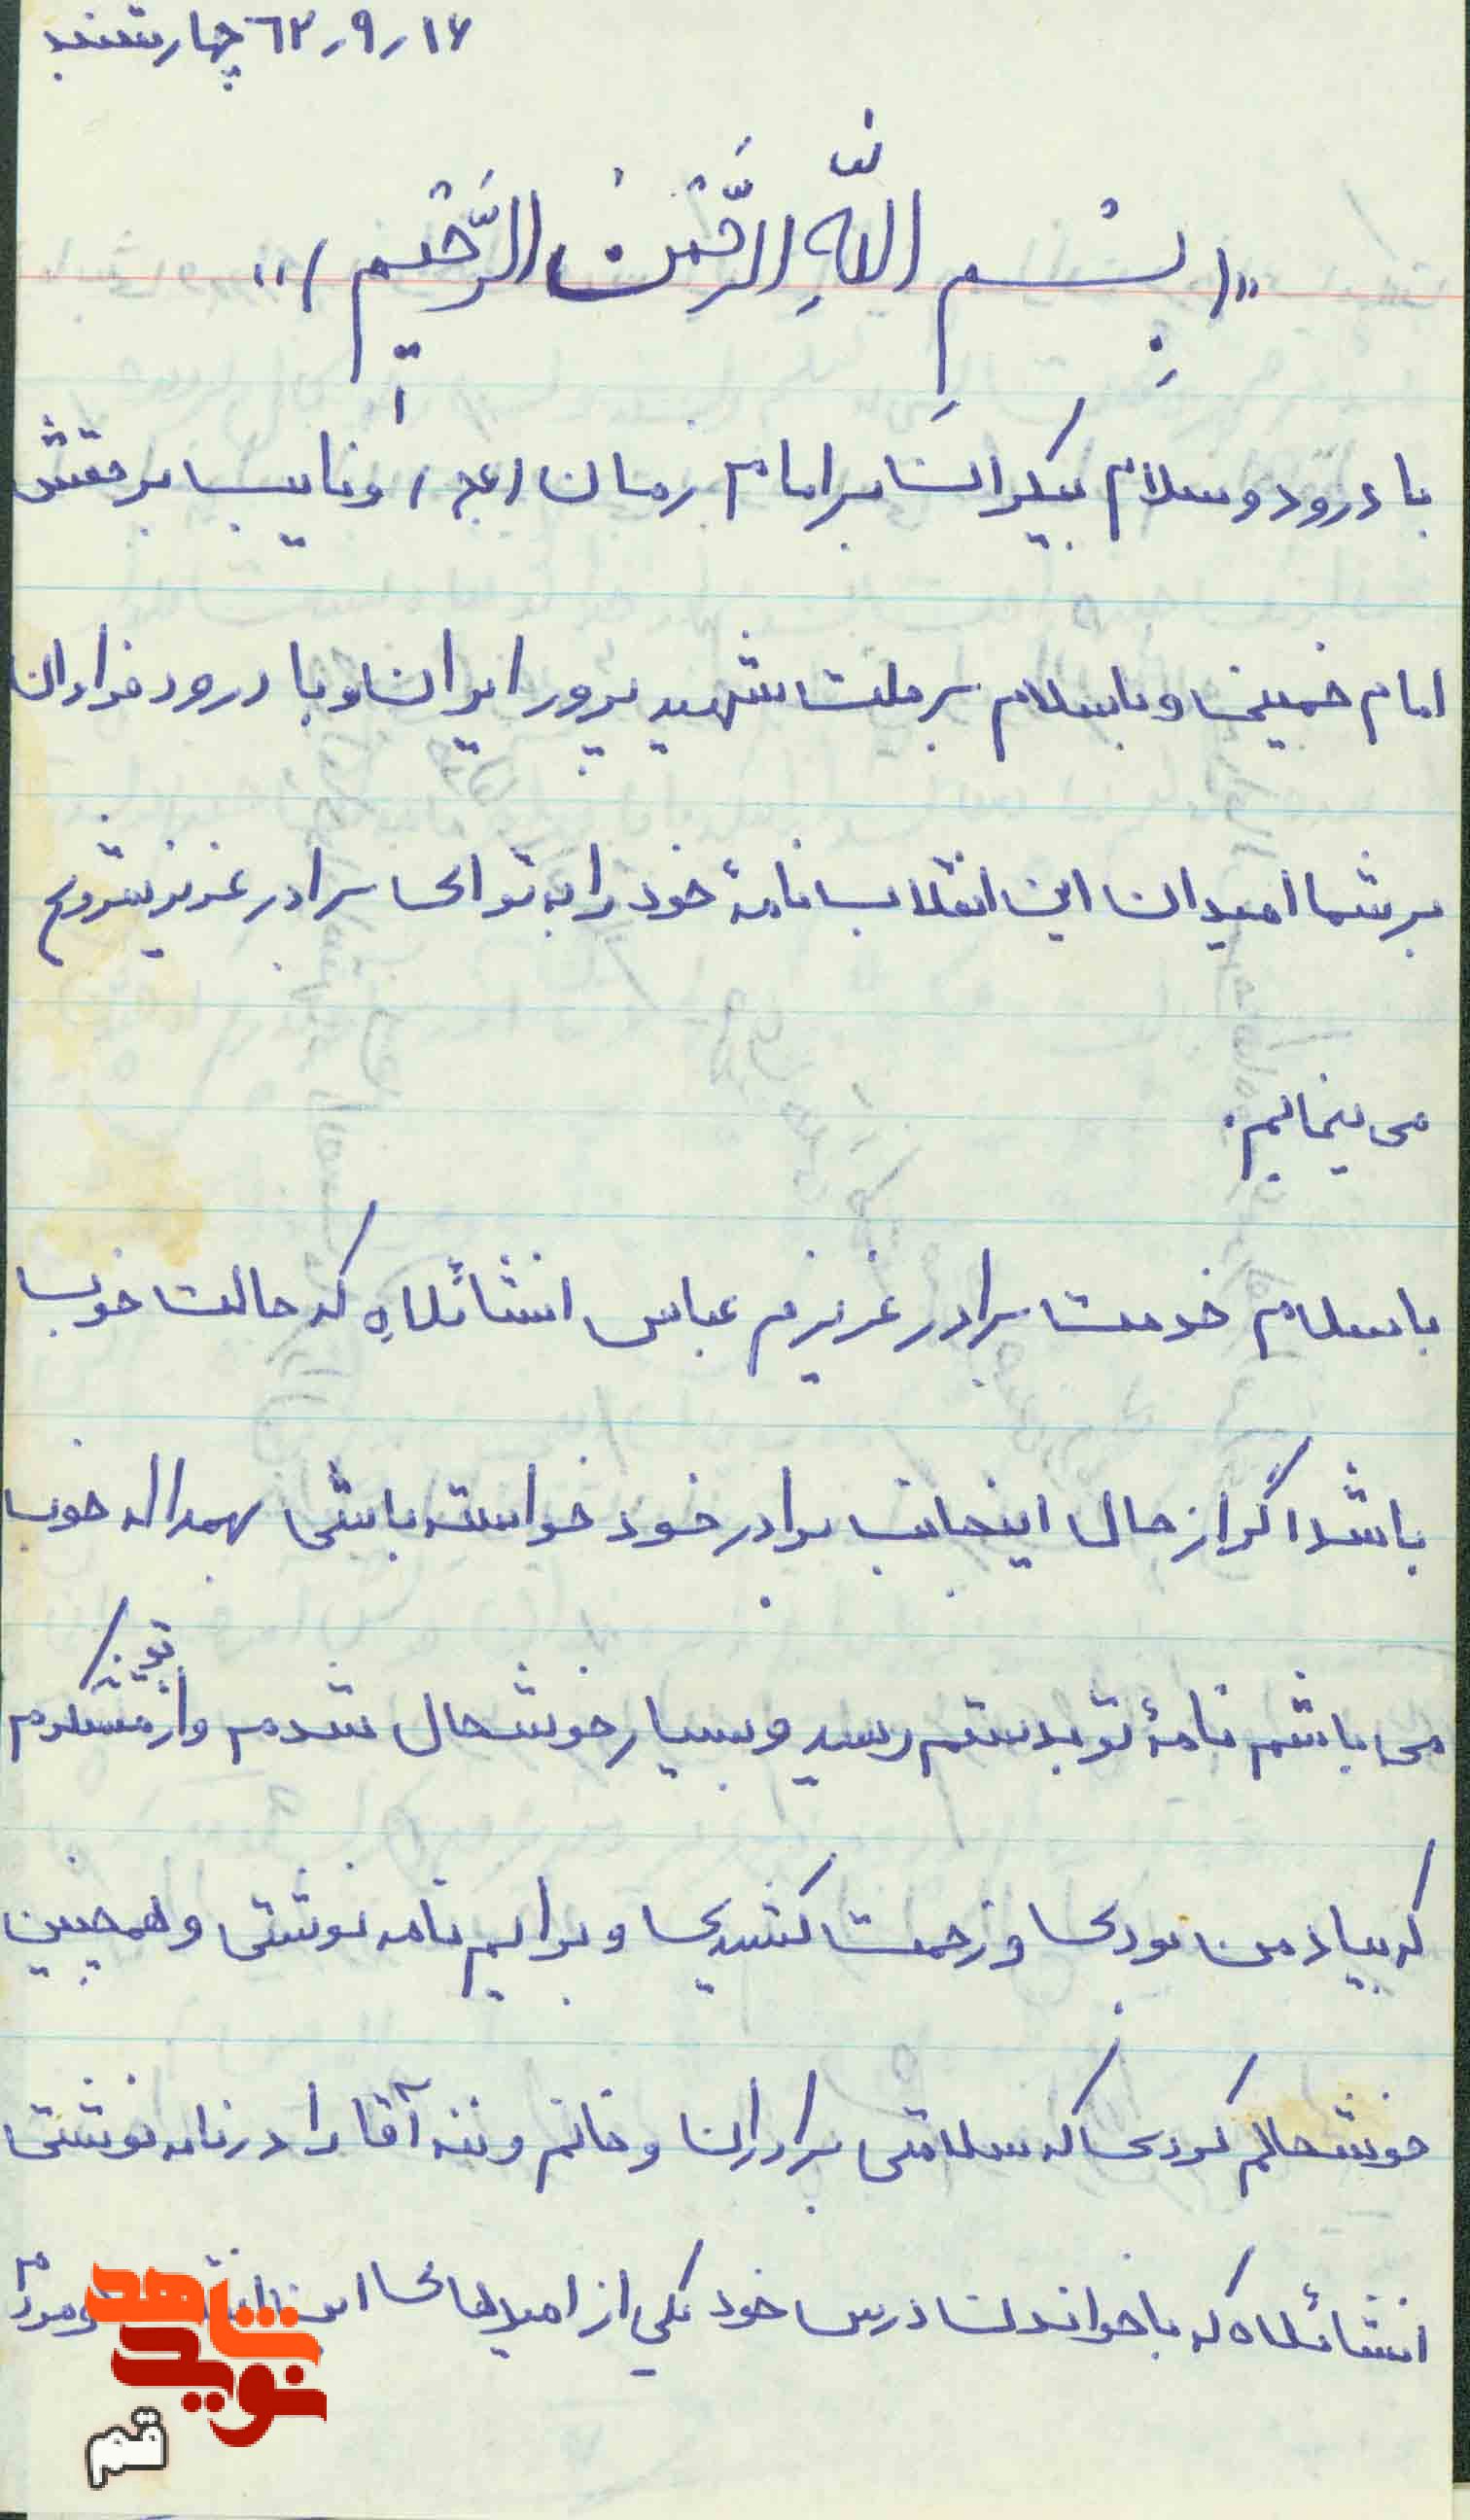 ۶۲٫۹٫۱۶ چهارشنبه
«(بِسْمِ اللَّهِ الرَّحْمنِ الرَّحیم)»
با درود و سلام بیکران بر امام زمان (عج) و نایب بر حقش
امام خمینی و با سلام بر ملت شهید پرور ایران و با درود فراوان
بر شما امیدان این انقلاب نامهٔ خود را به تو ای برادر عزیز شروع
می نمایم.
با سلام خدمت برادر عزیزم عباس انشائلاه که حالت خوب
باشد اگر از حال اینجانب برادر خود خواسته باشی بهمداله خوب
می باشم نامهٔ تو بدستم رسید و بسیار خوشحال شدم و از تو متشکرم
که بیاد من بودی و زحمت کشیدی و برایم نامه نوشتی و همچنین
خوشحالم کردی که سلامتی برادران و خانم و ننه آقا را در نامه نوشتی
انشائلاه که با خواندن درس خود یکی از امیدهای این و مردم
نوید شاهد
قم